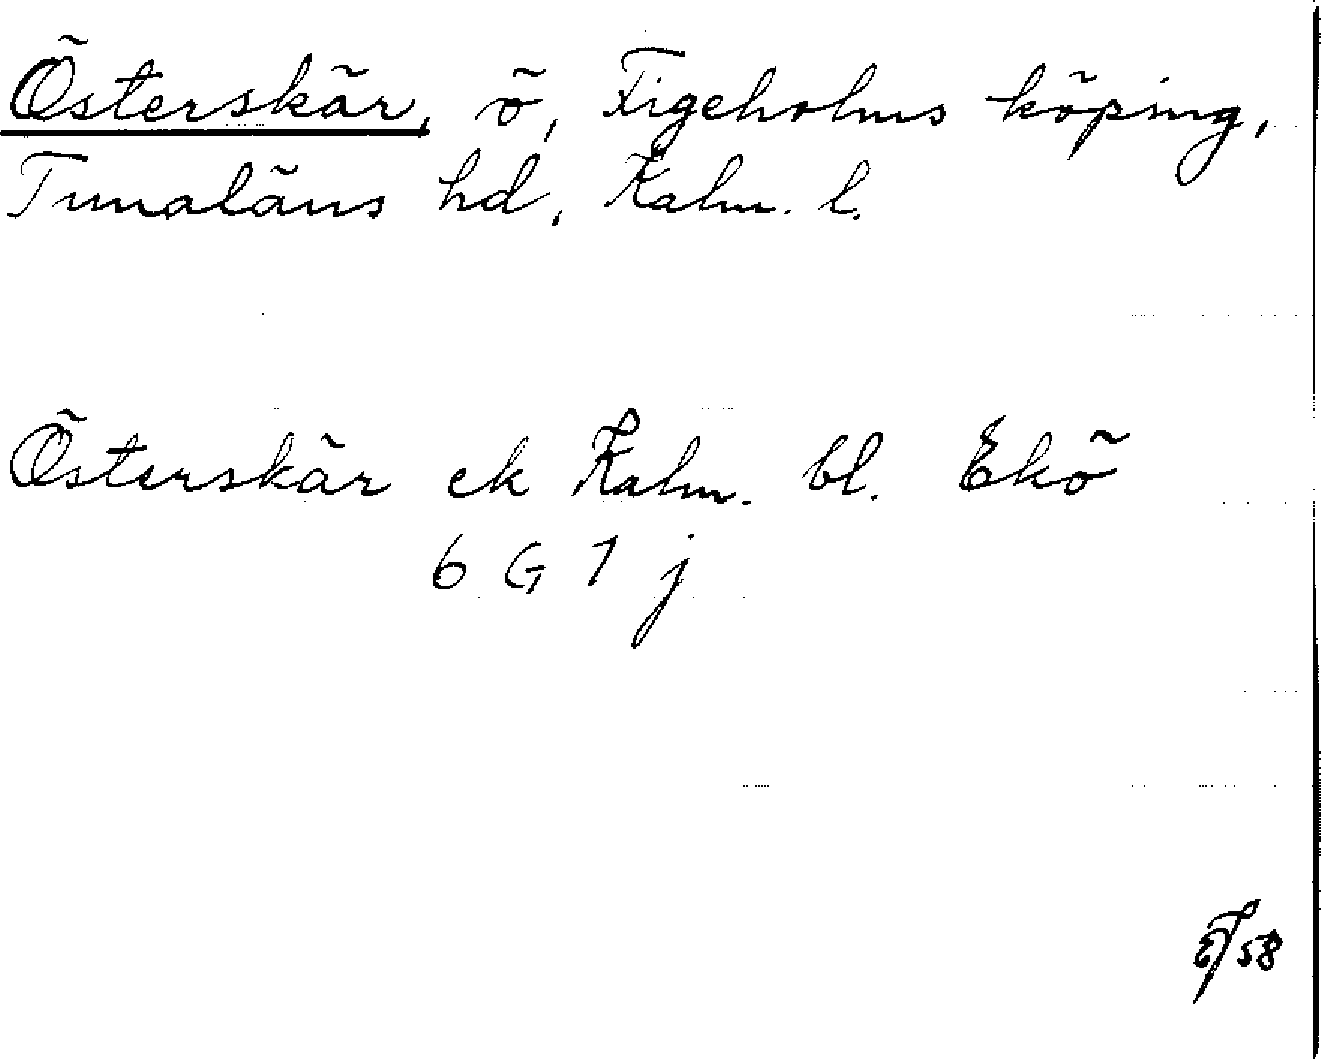 Österskär, ö, Figeholms köping,
Tunaläns hd, Kalm. l.
Österskär ek Kalm. bl. Ekö
6 G 1 j
58